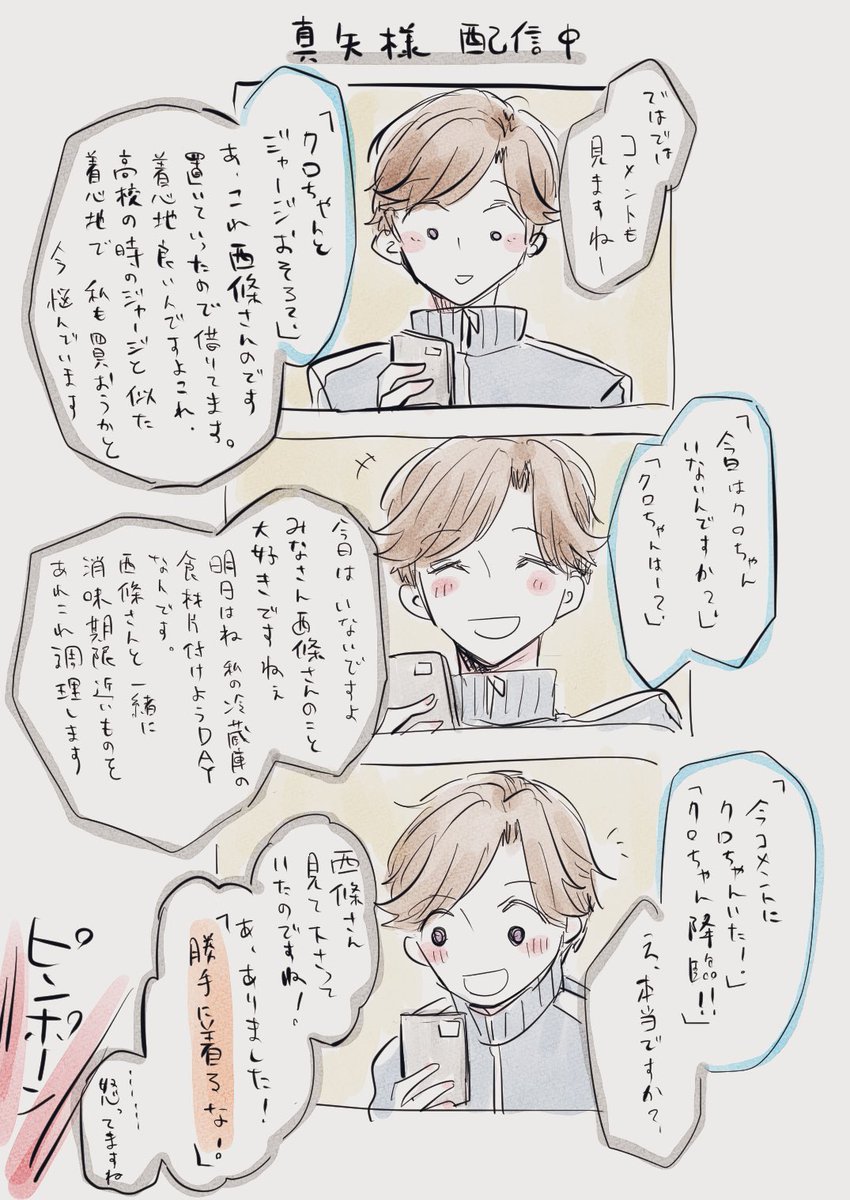 真矢様 配信中
ではでは
コメントも
見ますねー
「クロちゃんと
ジャージおそろで」
あ、これ西條さんのです
置いていったので借りてます。
着心地良いんですよこれ、
高校の時のジャージと似た
着心地で 私も買おうかと
今悩んでいます
「今日はクロちゃん
いないんですか?」
「クロちゃんはー?」
今日は いないですよ
みなさん西條さんのこと
大好きですねぇ
明日はね 私の冷蔵庫の
食材片付けようDAY
なんです。
西條さんと一緒に
消味期限近いものを
あれこれ調理します
「今コメントに
クロちゃんいた!」
「クロちゃん降臨!!」
え、本当ですか?
西條さん
見て下さって
いたのですね!
あ、ありました!
「勝手に着るな!」
……怒ってますね
ピンポーン